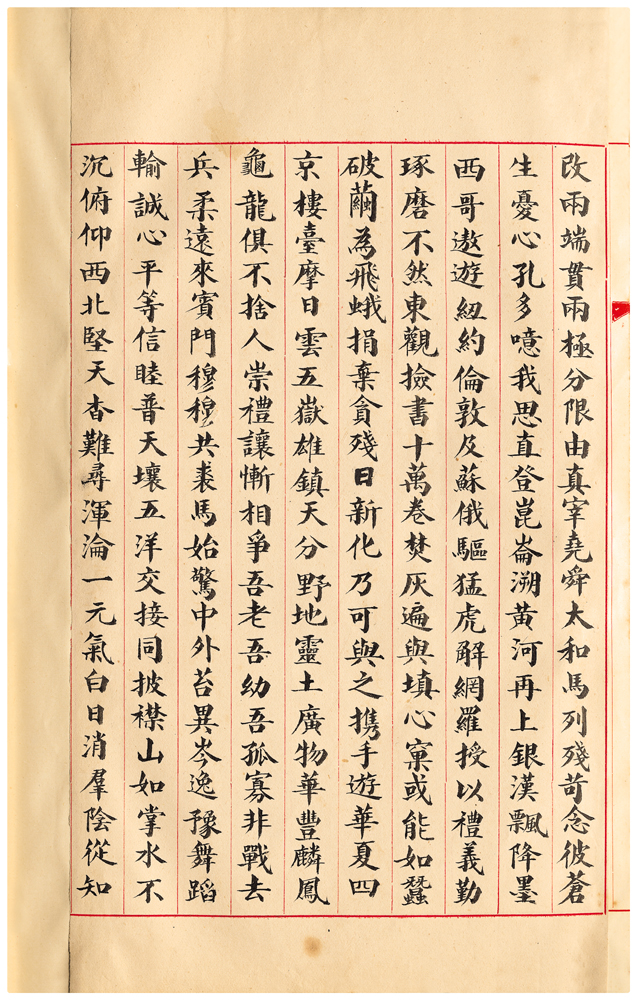 改兩端貫兩極分限由真宰堯舜太和馬列殘苛念彼蒼
生憂心孔多噫我思直登崑崙溯黃河再上銀漢飄降墨
西哥遨遊紐約倫敦及蘇俄驅猛虎解網羅授以禮義勤
琢磨不然東觀撿書十萬卷焚灰遍與填心窠或能如蠶
破繭為飛蛾捐棄貪殘日新化乃可與之携手遊華夏四
京樓臺摩日雲五嶽雄鎮天分野地靈土廣物華豐麟鳳
龜龍俱不捨人崇禮讓慚相爭吾老吾幼吾孤寡非戰去
兵柔遠來賓門穆穆共裘馬始驚中外苔異岑逸豫舞蹈
輸誠心平等信睦普天壤五洋交接同披襟山如掌水不
沉俯仰西北堅天杳難尋渾淪一元氣白日消羣陰從知